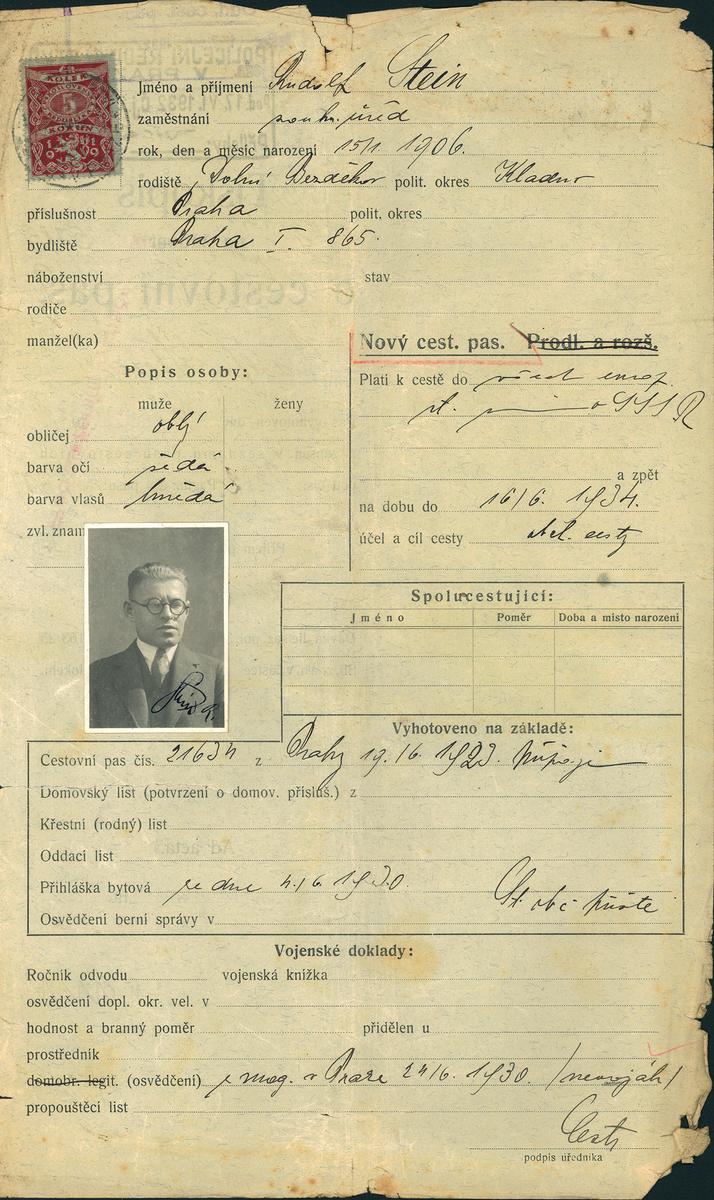 KOLEK
5
KORUN
Jméno a příjmení Rudolf Stein
zaměstnání soukr. úřed
rok, den a měsíc narození 15/1. 1906.
rodiště Dolní Bezděkov polit. okres Kladno
příslušnost Praha polit. okres
bydliště Praha I. 865.
náboženství stav
rodiče
manžel(ka)
Nový cest. pas. Prodl. a rozš.
Popis osoby:
muže ženy
obličej oblý
barva očí šedá
barva vlasů hnědá
zvl. znam
Platí k cestě do všech evrop.
st. SSSR
a zpět
na dobu do 16/6. 1934.
účel a cíl cesty obch. cesty
Spolucestující:
Jméno Poměr Doba a místo narození
Vyhotoveno na základě:
Cestovní pas čís. 21634 z Prahy
Domovský list (potvrzení o domov. přísluš.) z
Křestní (rodný) list
Oddací list
Přihláška bytová ze dne 4./6. 1930.
Osvědčení berní správy v
Vojenské doklady:
Ročník odvodu vojenská knížka
osvědčení dopl. okr. vel. v
hodnost a branný poměr přidělen u
prostředník
domobr. legit. (osvědčení) z mag. v Praze 24/6. 1930. /nevoják/
propouštěcí list
podpis úředníka